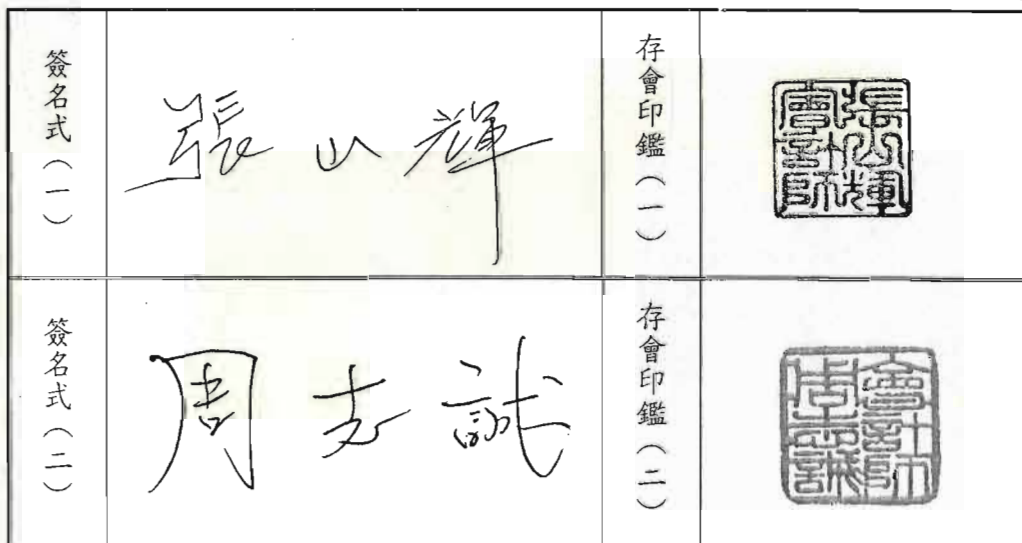 簽名式（一）
張山輝
存會印鑑（一）
張山輝會計師
簽名式（二）
周志誠
存會印鑑（二）
會計師周志誠